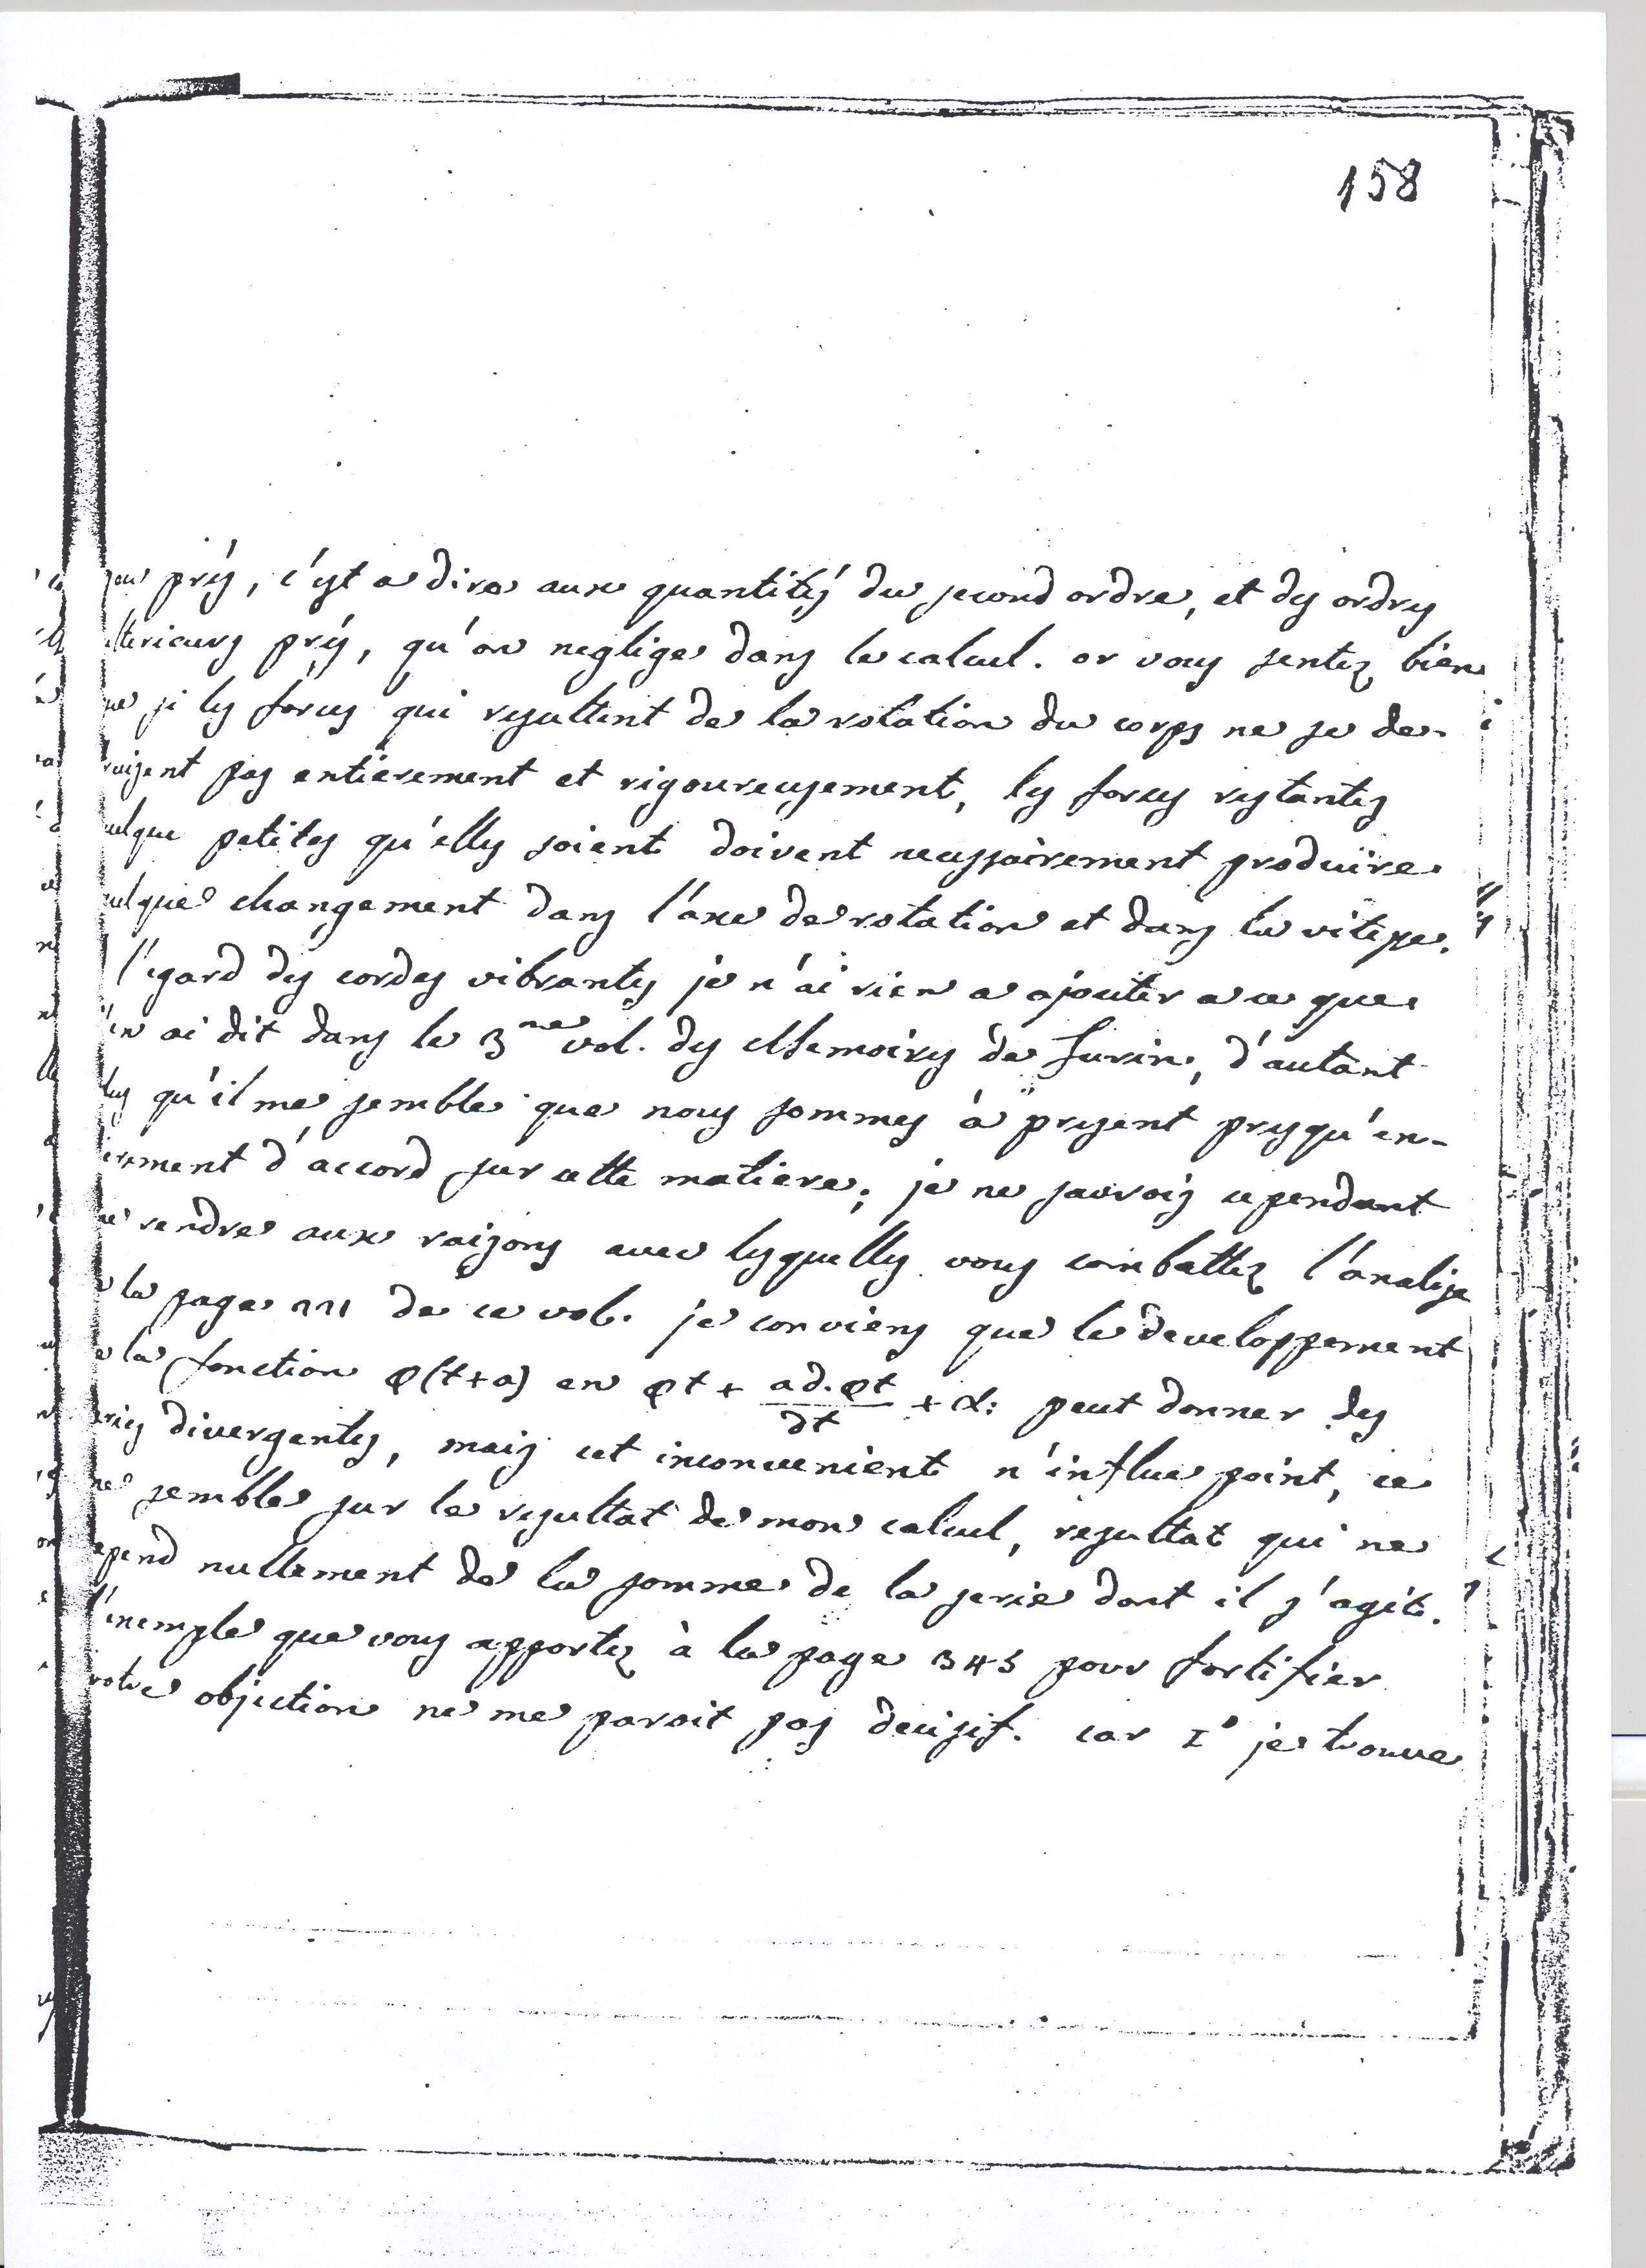 158
peu près, c'est a dire aux quantités du second ordre, et des ordres
lterieurs près, qu'on neglige dans le calcul. or vous sentez bien
ue si les forces qui resultent de la rotation du corps ne se de-
ruisent pas entierement et rigoureusement, les forces restantes
uelque petites qu'elles soient doivent necessairement produire
uelque changement dans l'axe de rotation et dans la vitesse.
l'egard des cordes vibrantes je n'ai rien a ajouter a ce que
'en ai dit dans le 3me vol. des Memoires de Turin, d'autant
lus qu'il me semble que nous sommes à present presqu'en-
ierement d'accord sur cette matiere; je ne saurois cependant
e rendre aux raisons avec lesquelles vous combattez l'analise
e la page 221 de ce vol. je conviens que le developpement
e la fonction φ(t+a) en φt + ad.φt/dt + &: peut donner des
eries divergentes, mais cet inconvenient n'influe point, ce
me semble sur le resultat de mon calcul, resultat qui ne
epend nullement de la somme de la serie dont il s'agit.
l'exemple que vous apportez à la page 345 pour fortifier
votre objection ne me paroit pas decisif. car I° je trouve